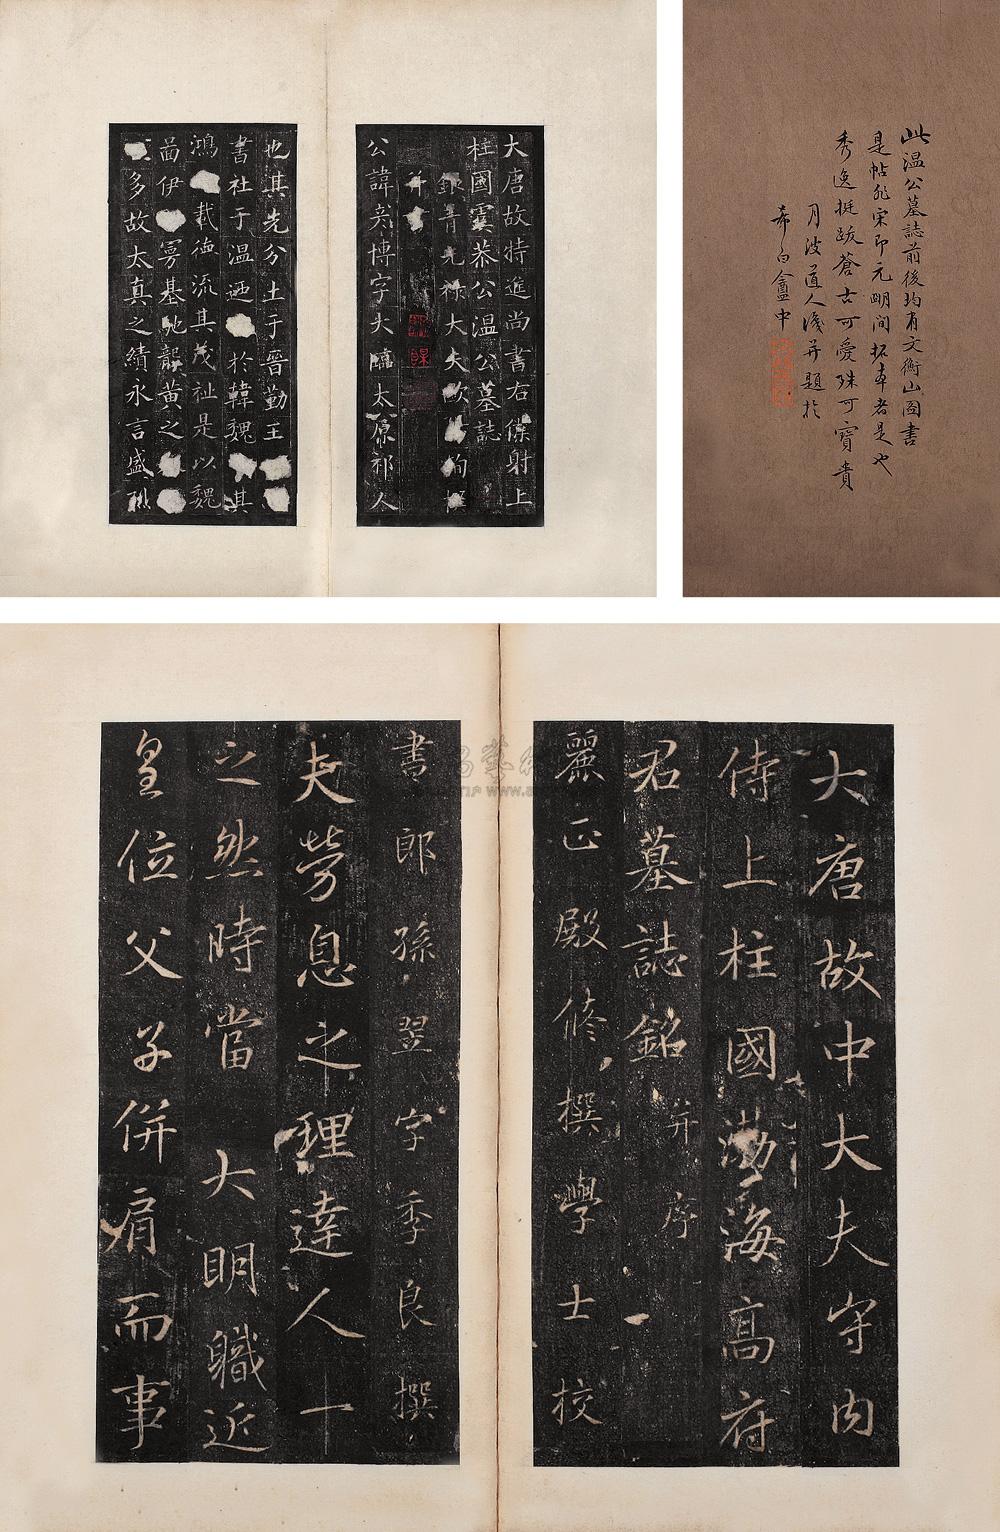 大唐故特進尚書右僕射上
柱國虞恭公溫公墓誌
銀青光祿大夫
并
公諱彥博字大臨太原祁人
也其先分土于晉勤王
書社于溫迺於韓魏其
鴻載德流其茂祉是以魏
啚伊曼基地韻黃之
多故太真之績永言盛烈
此温公墓誌前後均有文衡山圖書
是帖非宋即元明间拓本者是也
秀逸挺跋蒼古可愛殊可寶貴
月波道人識并題於
希白盦中
大唐故中大夫守内
侍上柱國渤海高府
君墓誌銘并序
麗正殿修撰學士校
書郎孫翌字季良撰
夫勞息之理達人一
之然時當大明職近
皇位父子併肩而事